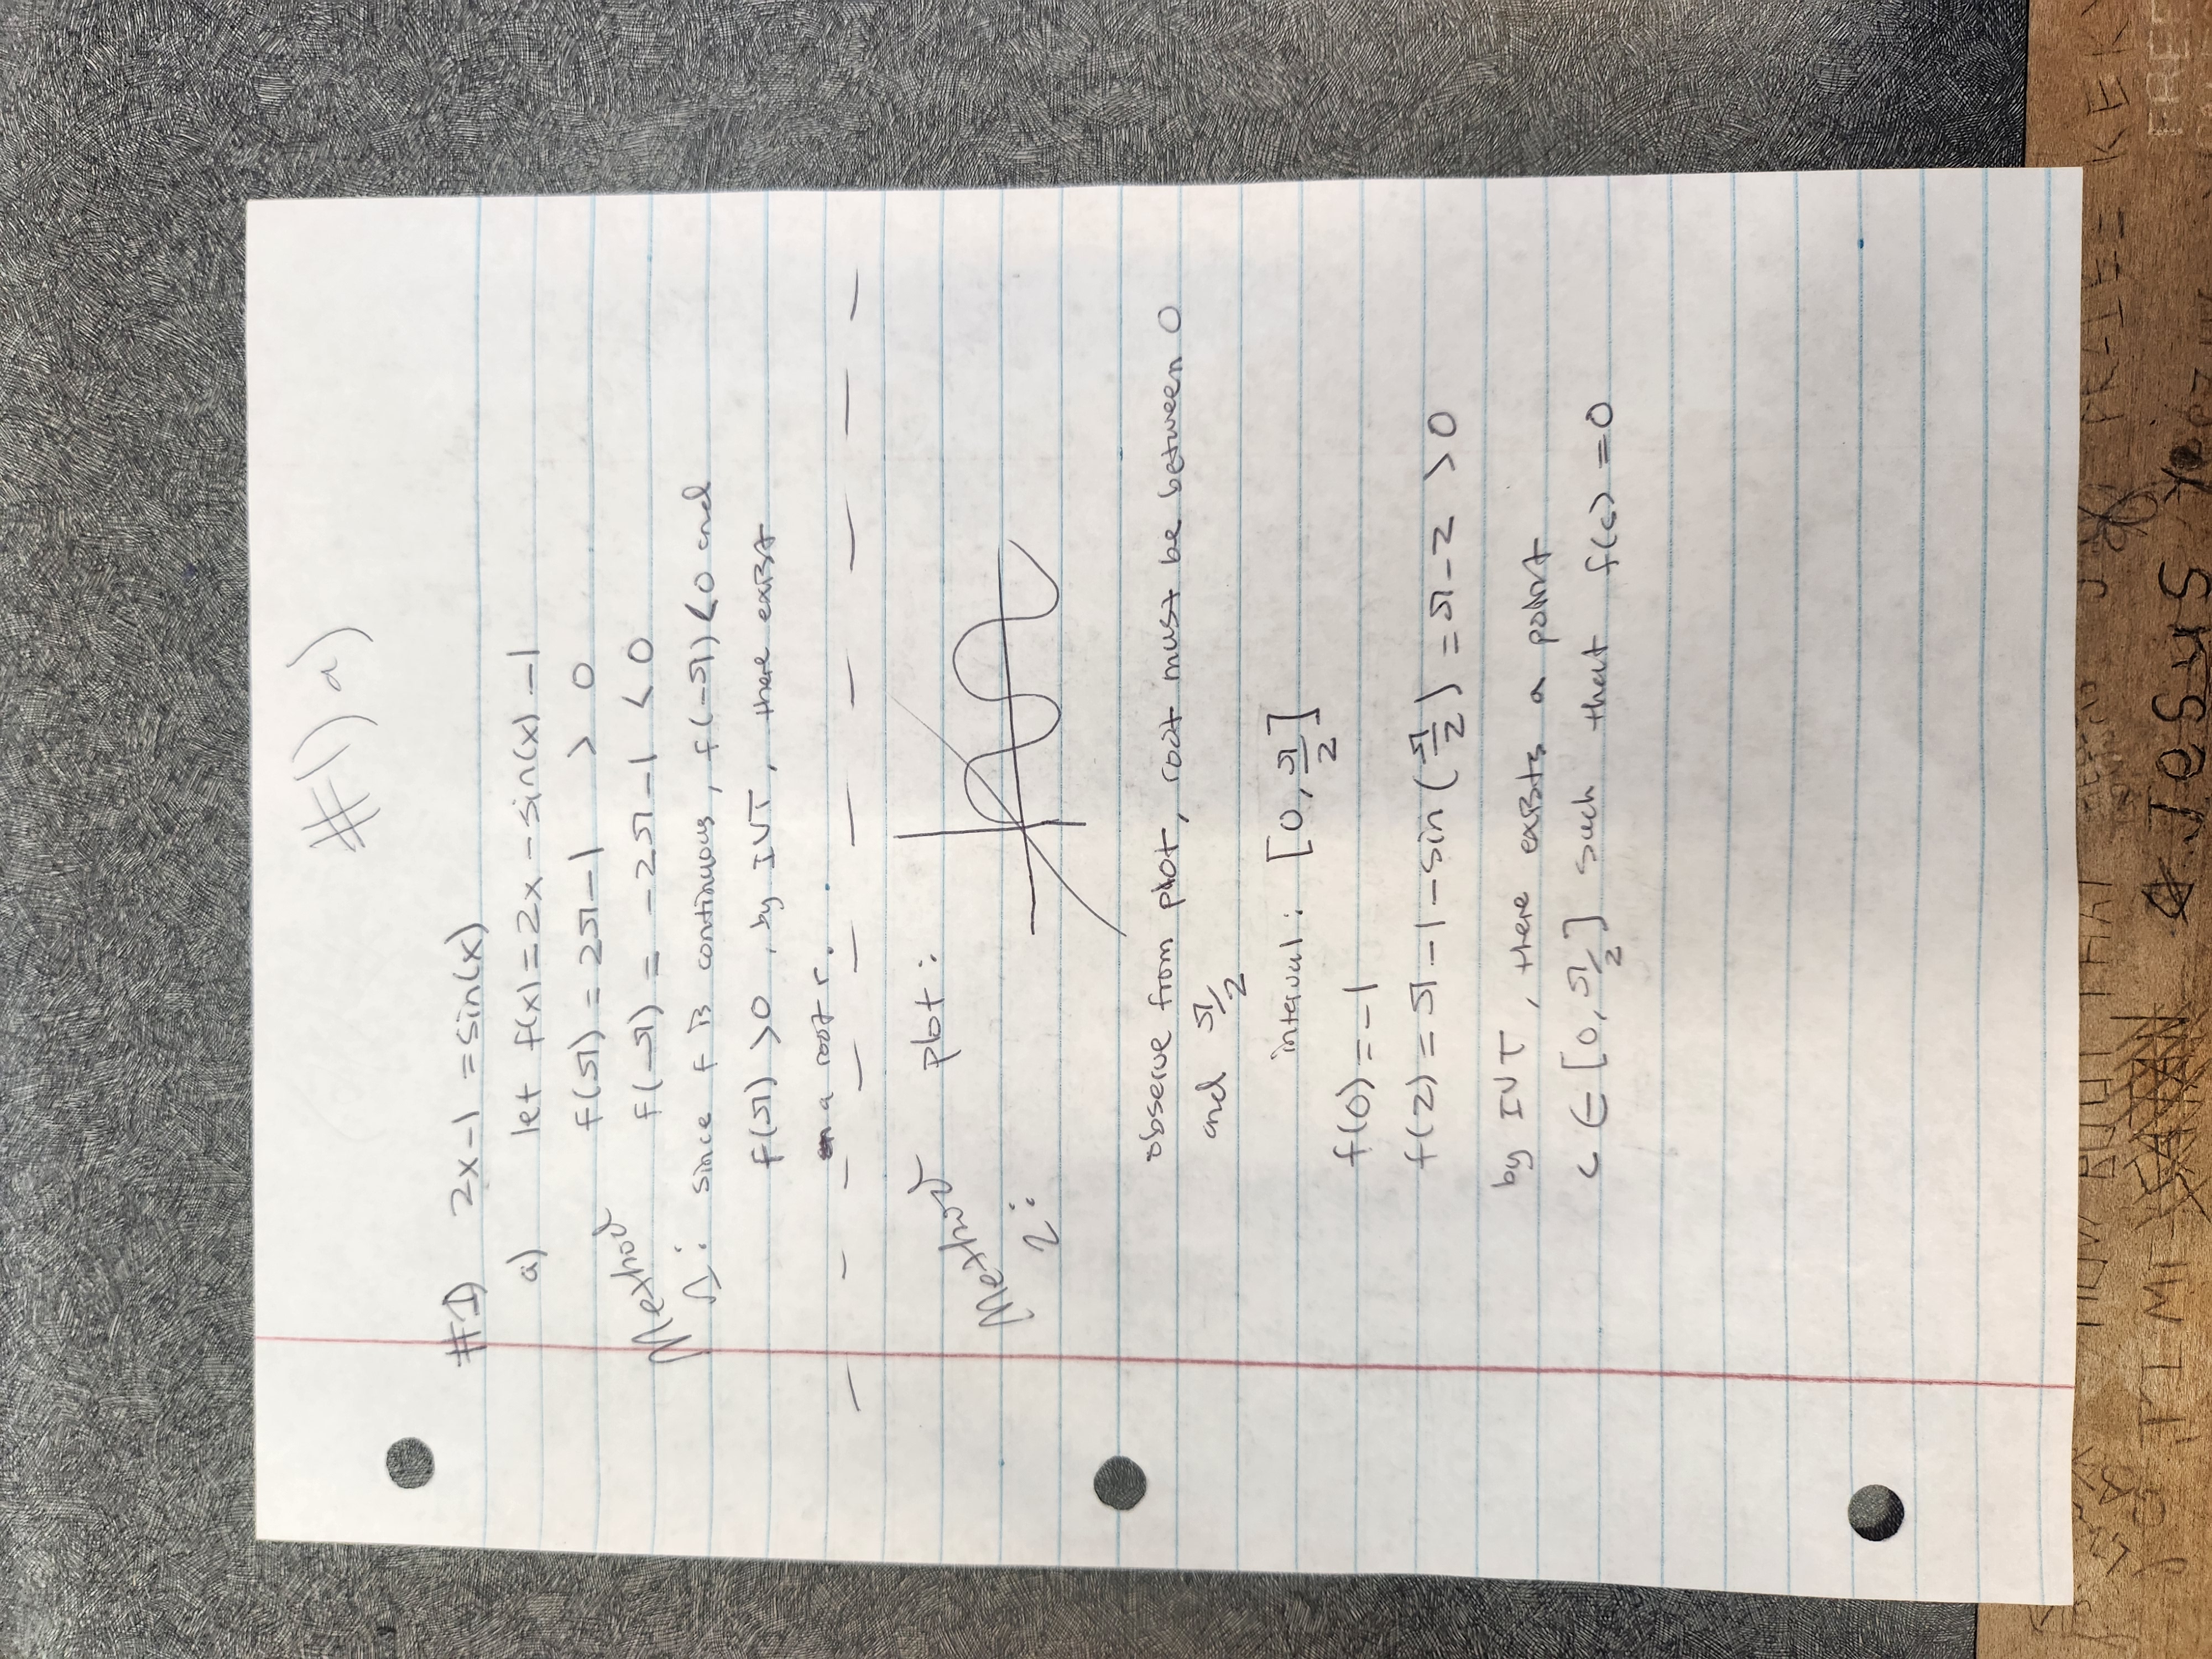 #1) a)
#1) 2x-1 = sin(x)
a) let f(x) = 2x - sin(x) - 1
f(π) = 2π-1 > 0
f(-π) = -2π-1 < 0
Method
1: since f is continuous, f(-π) < 0 and
f(π) > 0, by IVT, there exist
a root r.
Method
2:
plot:
observe from plot, root must be between 0
and π/2
interval: [0, π/2]
f(0) = -1
f(2) = π-1-sin(π/2) = π-2 > 0
by IVT, there exists a point
c ∈ [0, π/2] such that f(c) = 0
HOW BOUT THAT
TIM
Jesus
FREE